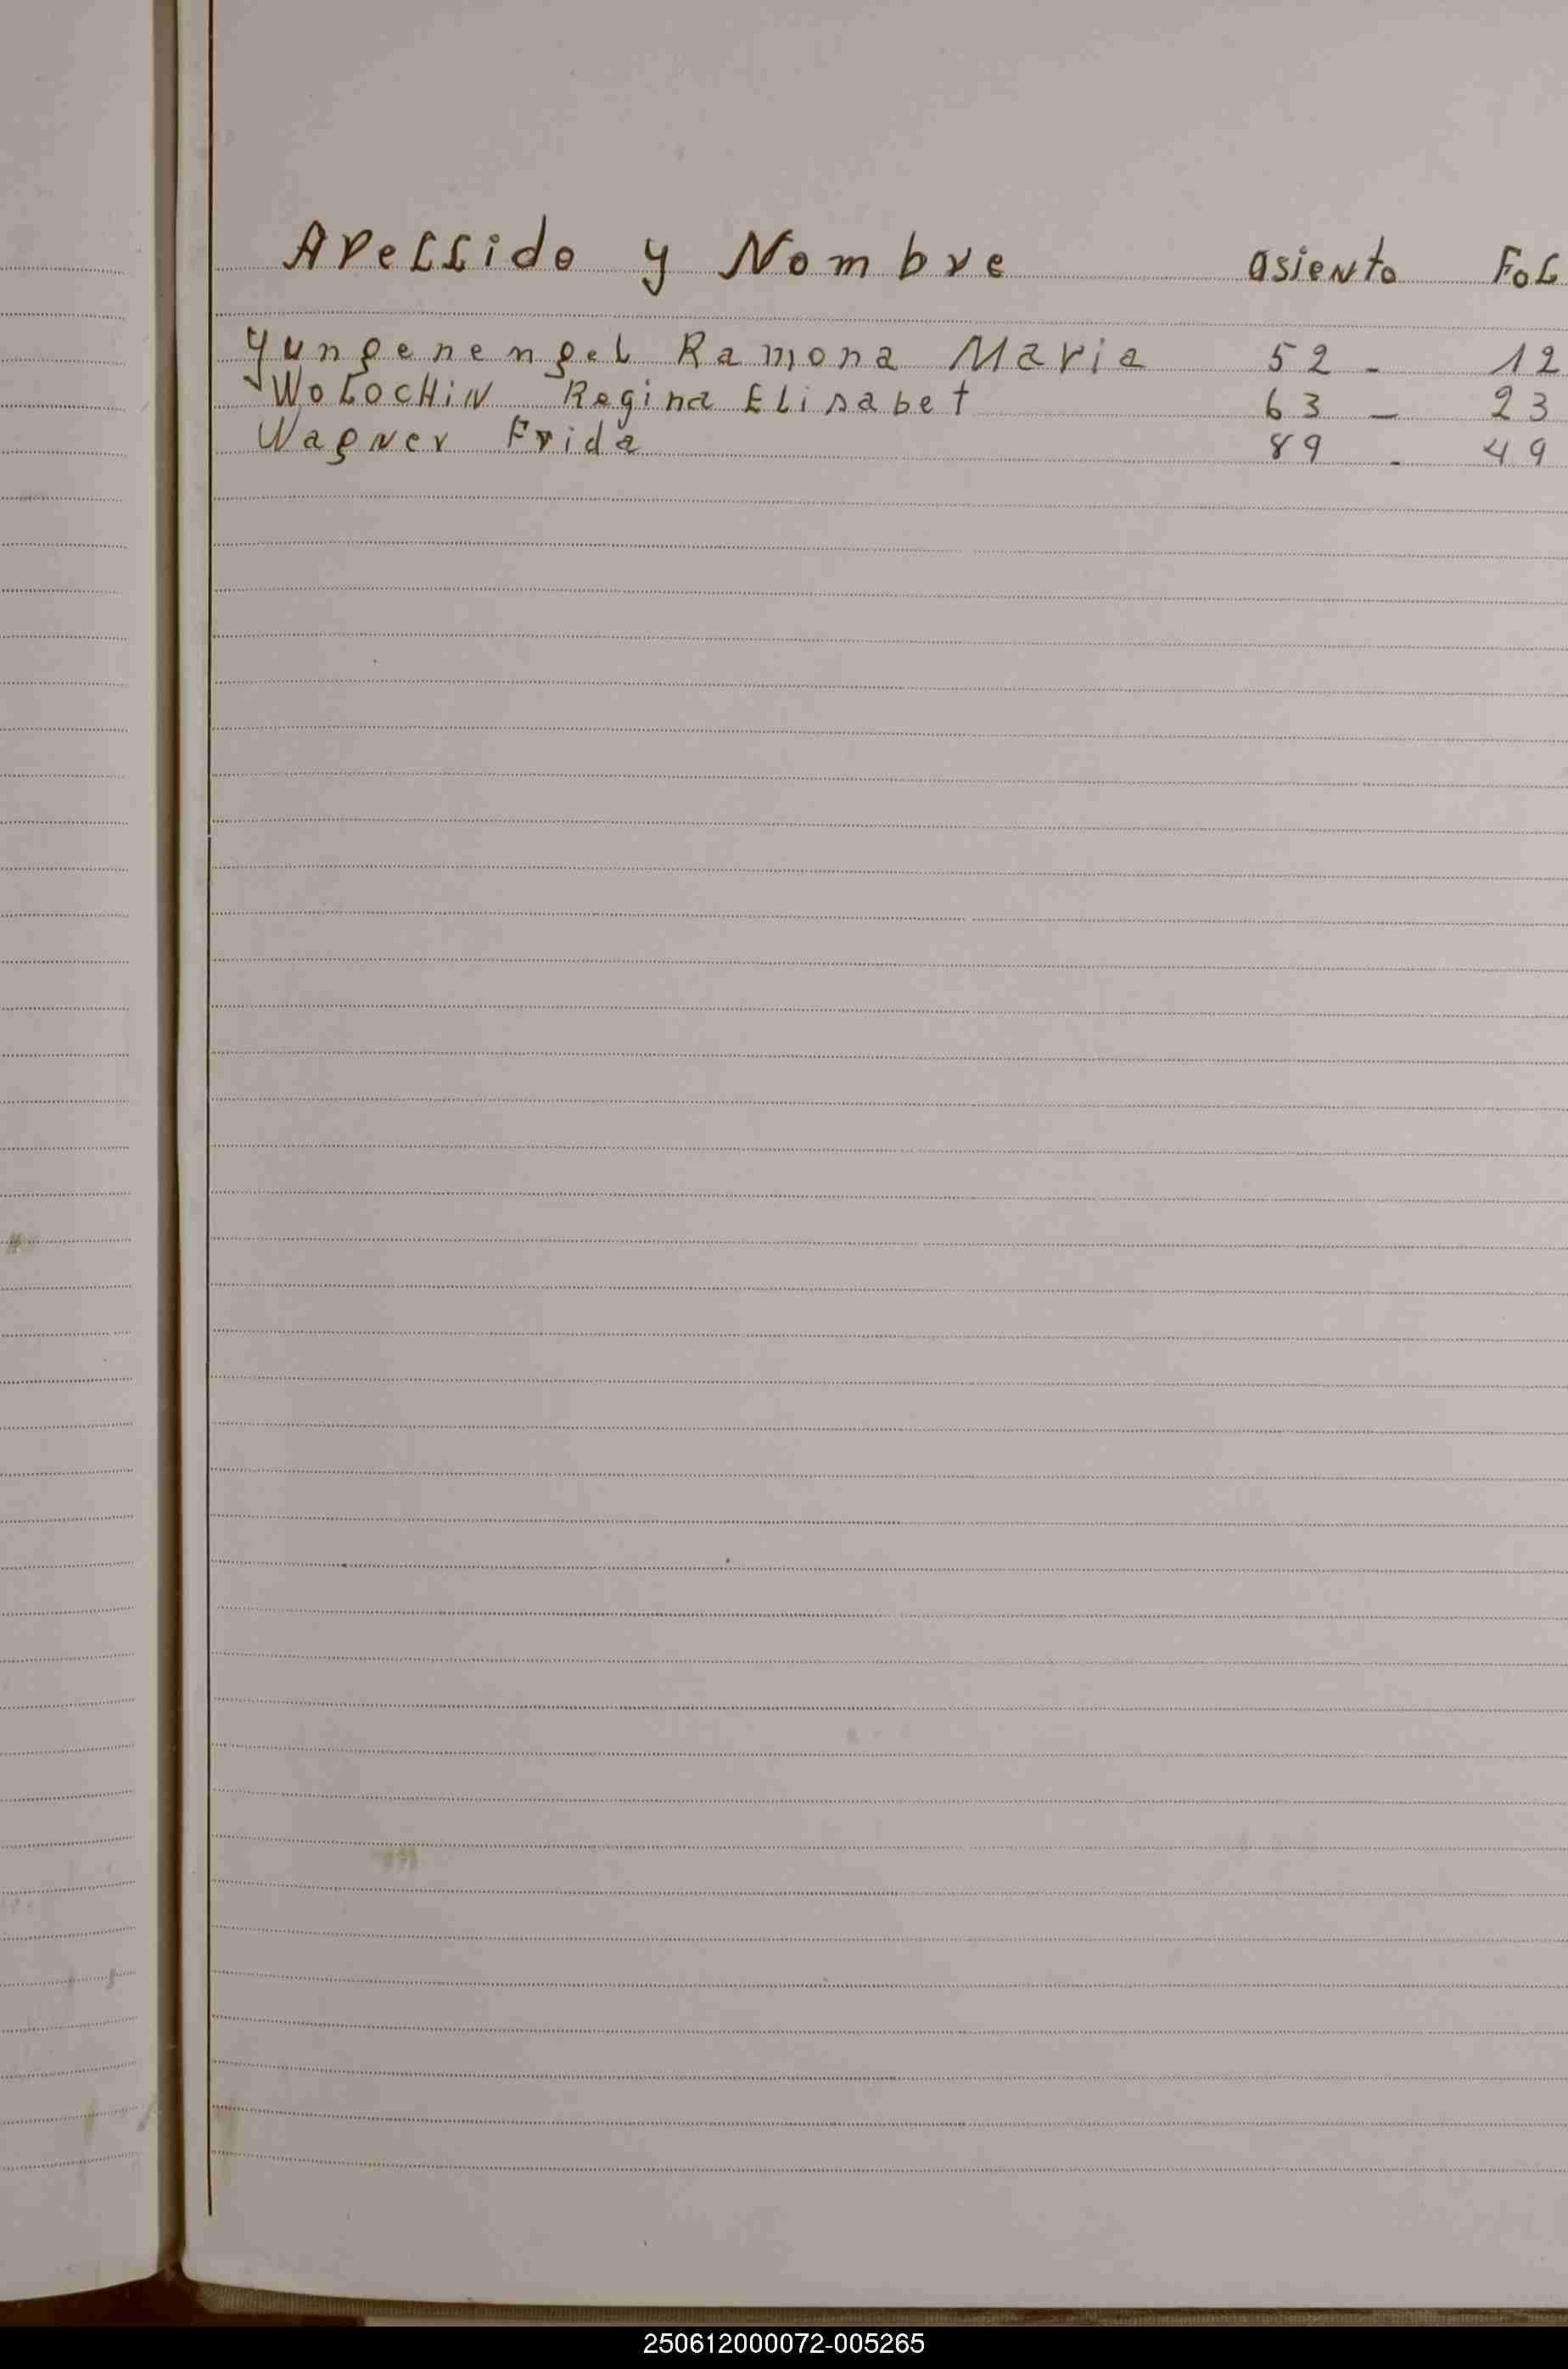 Apellido y Nombre asiento Fol
Yungenengel Ramona Maria 52 - 12
Wolochin Regina Elisabet 63 - 23
Wagner Frida 89 - 49
250612000072-005265